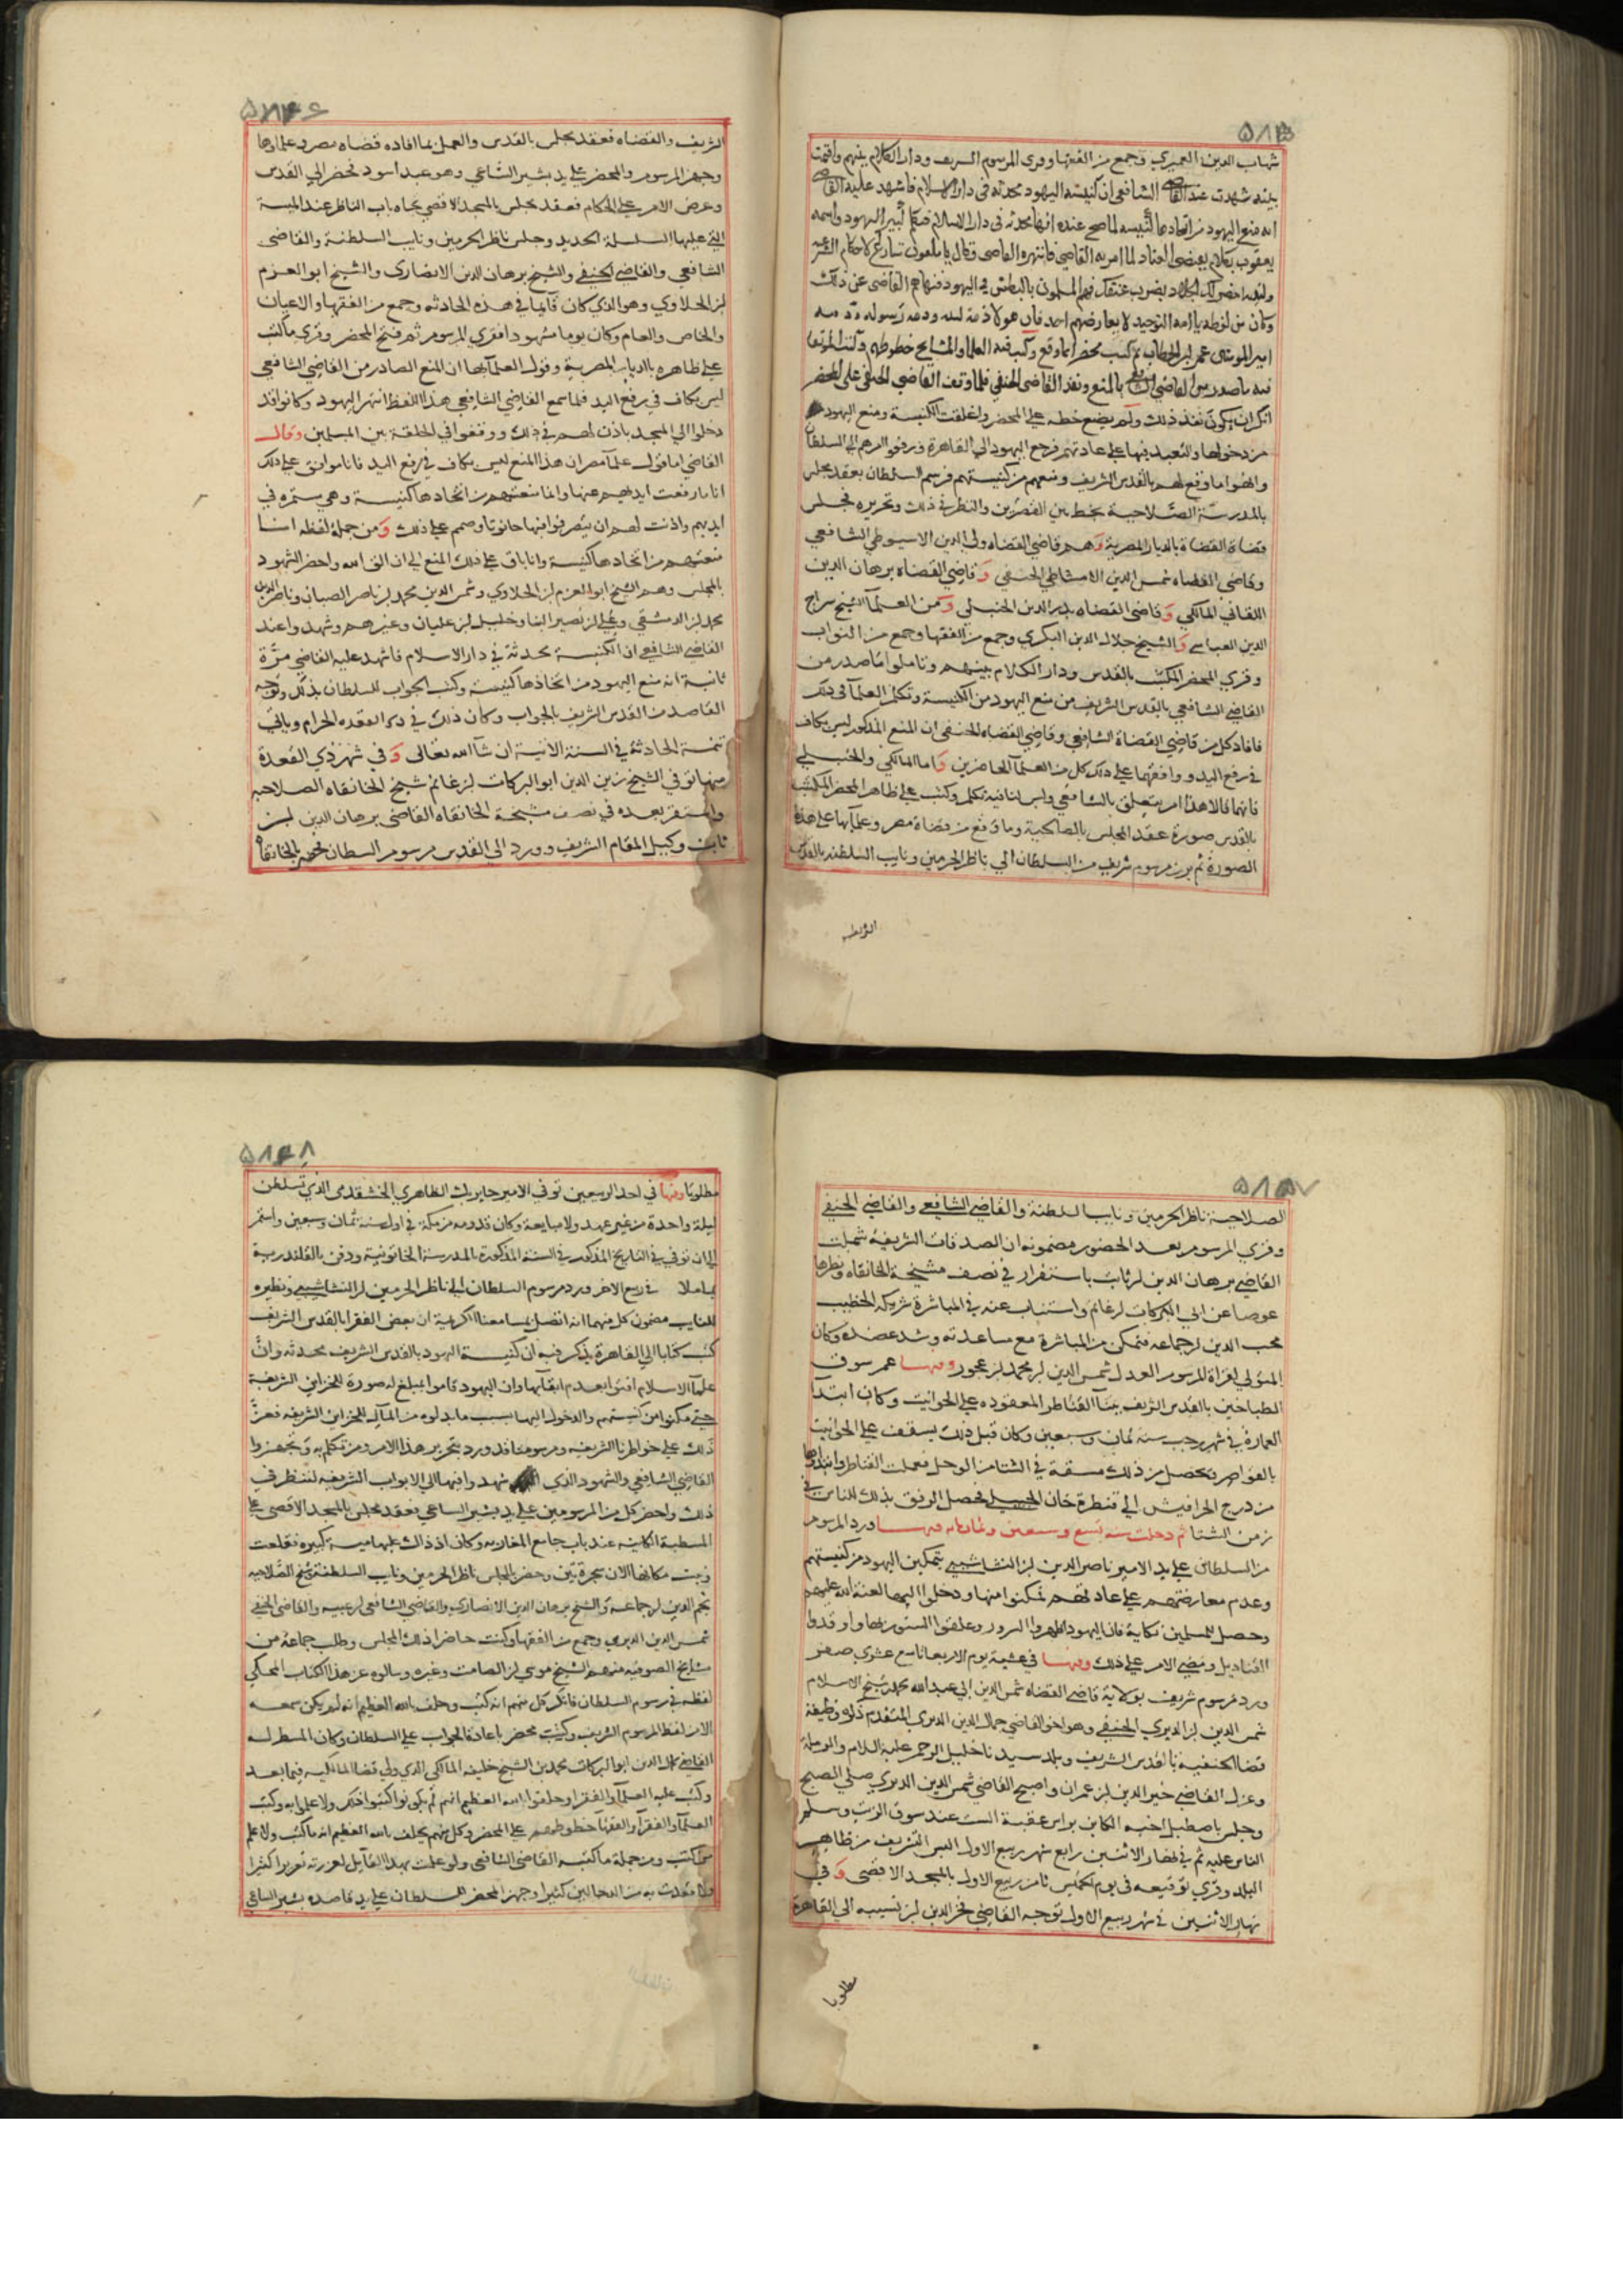 ٥٨٤٥
شهاب الدين العميري وجمع من الفقها وقرى المرسوم الشريف ودار الكلام بينهم واقيمت
بينه شهدت عند القاضي الشافعي ان كنيسة اليهود محدثه في دار الاسلام فاشهد عليه القاضي
انه منع اليهود من اتخاذها كنيسه لما صح عنده انها محدثه في دار الاسلام فتكلم كبير اليهود واسمه
يعقوب بكلام يقتضي العناد لما امر به القاضي فانتهره القاضي وقال يا ملعون تنازع لاحكام الشرع
بضرب عنقك فهم المسلمون بالبطش في اليهود فنهاهم القاضي عن ذلك
وكان من لفظه يا امة التوحيد لا يعارضهم احد فان هولا ذمة الله وذمة رسوله وذمه
امير المومنين عمر ابن الخطاب ثم كتب محضر بما وقع وكتب فيه العلما والمشايخ خطوطهم
فيه ما صدر من القاضي الشافعي بالمنع ونفذ القاضي الحنفي فلما وقف القاضي الحنفي على المحضر
انكر ان يكون نفذ ذلك ولم يضع خطه على المحضر واغلقت الكنيسة ومنع اليهود
من دخولها والتعبد فيها على عادتهم فرجع اليهود الى القاهرة ورفعوا امرهم الى السلطان
وانهوا ما وقع لهم بالقدس الشريف ومنعهم من كنيستهم فرسم السلطان بعقد مجلس
بالمدرسة الصلاحية بخط بين القصرين والنظر في ذلك وتحريره فجلس
قضاة القضاة بالديار المصرية وهم قاضي القضاه ولي الدين الاسيوطي الشافعي
وقاضي القضاه شمس الدين الامشاطي الحنفي وقاضي القضاه برهان الدين
اللقاني المالكي وقاضي القضاه بدر الدين الحنبلي ومن العلما الشيخ سراج
الدين العبادي والشيخ جلال الدين البكري وجمع من الفقها وجمع من النواب
وقري المحضر المكتتب بالقدس ودار الكلام بينهم وتاملوا ما صدر من
القاضي الشافعي بالقدس الشريف من منع اليهود من الكنيسة وتكلم العلما في ذلك
فافاد كل من قاضي القضاة الشافعي وقاضي القضاه الحنفي ان المنع المذكور ليس بكاف
في رفع اليد ووافقهما على ذلك كل من العلما الحاضرين واما المالكي والحنبلي
فانهما قالا هذا امر يتعلق بالشافعي وليس لنا فيه تكلم وكتب على ظاهر المحضر المكتتب
بالقدس صورة عقد المجلس بالصالحية وما وقع من قضاة مصر وعلمايها على هذه
الصورة ثم برز مرسوم شريف من السلطان الى ناظر الحرمين ونايب السلطنه بالقدس
٥٨٤٦
الشريف والقضاه فعقد مجلس بالقدس والعمل بما افاده قضاه مصر وعلماوها
وجهز المرسوم والمحضر على يد بشير الساعي وهو عبد اسود فحضر الى القدس
وعرض الامر على الحكام فعقد مجلس بالمسجد الاقصى تجاه باب الناظر عند الميسة
التي عليها السلسلة الحديد وجلس ناظر الحرمين ونايب السلطنة والقاضي
الشافعي والقاضي الحنفي والشيخ برهان الدين الانصاري والشيخ ابو العزم
ابن الحلاوي وهو الذي كان قايما في هذه الحادثه وجمع من الفقها والاعيان
والخاص والعام وكان يوما مشهودا فقري المرسوم ثم فتح المحضر وقري ما كتب
على ظاهره بالديار المصرية وقول العلما بها ان المنع الصادر من القاضي الشافعي
ليس بكاف في رفع اليد فلما سمع القاضي الشافعي هذا اللفظ انتهر اليهود وكانوا قد
دخلوا الي المسجد باذن لهم في ذلك ووقفوا في الحلقة بين المسلمين وقال
القاضي اما قول علما مصر ان هذا المنع ليس بكاف في رفع اليد فانا موافق على ذلك
انا ما رفعت ايديهم عنها وانما منعتهم من اتخاذها كنيسة وهي مستمرة في
ايديهم واذنت لهم ان يتصرفوا فيها حانوتا وصمم على ذلك ومن جملة لفظه انا
منعتهم من اتخاذها كنيسة وانا باق على ذلك المنع الى ان القى الله واحضر الشهود
بالمجلس وهم الشيخ ابو العزم ابن الحلاوي وشمس الدين محمد بن ناصر الصبان وناصر الدين
محمد ابن الدمشقي وعلي ابن نصير البنا وخليل ابن عليان وغيرهم وشهدوا عند
القاضي الشافعي ان الكنيسة محدثة في دار الاسلام فاشهد عليه القاضي مرة
ثانية انه منع اليهود من اتخاذها كنيسة وكتب الجواب للسلطان بذلك وتوجه
القاصد من القدس الشريف بالجواب وكان ذلك في ذي القعده الحرام وياتي
تتمة الحادثة في السنة الاتية ان شا الله تعالى وفي شهر ذي القعدة
منها توفي الشيخ زين الدين ابو البركات ابن غانم شيخ الخانقاه الصلاحيه
واستقر بعده في نصف مشيخة الخانقاه القاضي برهان الدين ابن
ثابت وكيل المقام الشريف وورد الى القدس مرسوم السلطان فحضر بالخانقاه
٥٨٤٧
الصلاحية ناظر الحرمين ونايب السلطنة والقاضي الشافعي والقاضي الحنفي
وقري المرسوم بعد الحضور مضمونه ان الصدقات الشريفة شملت
القاضي برهان الدين ابن ثابت باستقرار في نصف مشيخة الخانقاه ونظرها
عوضا عن ابي البركات ابن غانم واستناب عنه في المباشرة شريكه الخطيب
محب الدين ابن جماعه فتمكن من المباشرة مع مساعدته وشد عضده وكان
المتولي لقراة المرسوم العدل شمس الدين ابن محمد ابن عجور وفيها عمر سوق
الطباخين بالقدس الشريف بينا القناطر المعقوده على الحوانيت وكان ابتدا
العمارة في شهر رجب سنه ثمان وسبعين وكان قبل ذلك يسقف على الحوانيت
بالقواصر فحصل من ذلك مشقة في الشتا من الوحل فعملت القناطر وابتداوها
من درج الحرافيش الى قنطرة خان الجبيلي فحصل الرفق بذلك للناس في
زمن الشتا ثم دخلت سنه تسع وسبعين وثمانمايه فيها ورد المرسوم
من السلطان على يد الامير ناصر الدين ابن النشاشيبي بتمكين اليهود من كنيستهم
وعدم معارضتهم على عادتهم فتمكنوا منها ودخلوا اليها لعنة الله عليهم
وحصل للمسلمين نكاية فان اليهود اظهروا السرور وعلقوا الستور بها واوقدوا
القناديل ومضى الامر على ذلك وفيها في عشية يوم الاربعا تاسع عشري صفر
ورد مرسوم شريف بولاية قاضي القضاه شمس الدين ابي عبد الله محمد ابن شيخ الاسلام
شمس الدين ابن الديري الحنفي وهو اخو القاضي جمال الدين الديري المتقدم ذكره وظيفة
قضا الحنفيه بالقدس الشريف وبلد سيدنا خليل الرحمن عليه السلام والرملة
وعزل القاضي خير الدين ابن عمران واصبح القاضي شمس الدين الديري صلى الصبح
وجلس باصطبل اخيه الكاين براس عقبة الست عند سوق الزيت وسلم
الناس عليه ثم في نهار الاثنين رابع شهر ربيع الاول البس التشريف من ظاهر
البلد وقري توقيعه في يوم الخميس ثامن ربيع الاول بالمسجد الاقصى وفي
نهار الاثنين في شهر ربيع الاول توجه القاضي فخر الدين ابن نسيبه الى القاهرة
مطلوبا
٥٨٤٨
مطلوبا وفيها في احد الربيعين توفي الامير جاير بك الظاهري الخشقدمي الذي تسلطن
ليلة واحدة من غير عهد ولا مبايعة وكان قدومه من مكة في اول سنة ثمان وسبعين واستمر
الى ان توفي في التاريخ المذكور في السنة المذكورة بالمدرسة الخاتونية ودفن بالقلندرية
بماملا في ربيع الاخر ورد مرسوم السلطان الى ناظر الحرمين ابن النشاشيبي ونظيره
للنايب مضمون كل منهما انه اتصل بمسامعنا الكريمة ان بعض الفقرا بالقدس الشريف
كتب كتابا الى القاهرة يذكر فيه ان كنيسة اليهود بالقدس الشريف محدثه وان
علما الاسلام افتوا بعدم ابقايها وان اليهود قاموا بمبلغ له صورة للخزاين الشريفة
حتى مكنوا من كنيستهم والدخول اليها بسبب ما بذلوه من المال للخزاين الشريفه فعز
ذلك على خواطرنا الشريفه ومرسومنا قد ورد بتحرير هذا الامر ومن تكلم به وتجهزوا
القاضي الشافعي والشهود الذي شهدوا فيها الى الابواب الشريفه لننظر في
ذلك واحضر كل من المرسومين على يد بشير الساعي فعقد مجلس بالمسجد الاقصى على
المسطبة الكاينه عند باب جامع المغاربه وكان اذ ذاك عليها ميسة كبيره فقلعت
ونبت مكانها الان شجرة تين وحضر بالمجلس ناظر الحرمين ونايب السلطنة وشيخ الصلاحيه
نجم الدين ابن جماعه والشيخ برهان الدين الانصاري والقاضي الشافعي ابن عبيه والقاضي الحنفي
شمس الدين الديري وجمع من الفقها وكنت حاضرا ذلك المجلس وطلب جماعة من
مشايخ الصوفيه منهم الشيخ موسى ابن الصامت وغيره وسالوه عن هذا الكتاب المحكي
لفظه في مرسوم السلطان فانكر كل منهم انه كتب وحلف بالله العظيم انه لم يكن سمعه
الا من لفظ المرسوم الشريف وكتب محضر باعادة الجواب على السلطان وكان المسطر له
القاضي كمال الدين ابو البركات محمد بن الشيخ خليفه المالكي الذي ولي قضا المالكيه فيما بعد
وكتب عليه العلما والفقرا وحلفوا بالله العظيم انهم لم يكونوا كتبوا ذلك ولا علموا به وكتب
العلما والفقرا والفقها خطوطهم على المحضر وكل منهم يحلف بالله العظيم انه ما كتب ولا علم
من كتب ومن جملة ما كتبه القاضي الشافعي ولو علمت بهذا القايل لعزرته تعزيرا كثيرا
كثيرا وجهز المحضر للسلطان على يد قاصده بشير الساعي